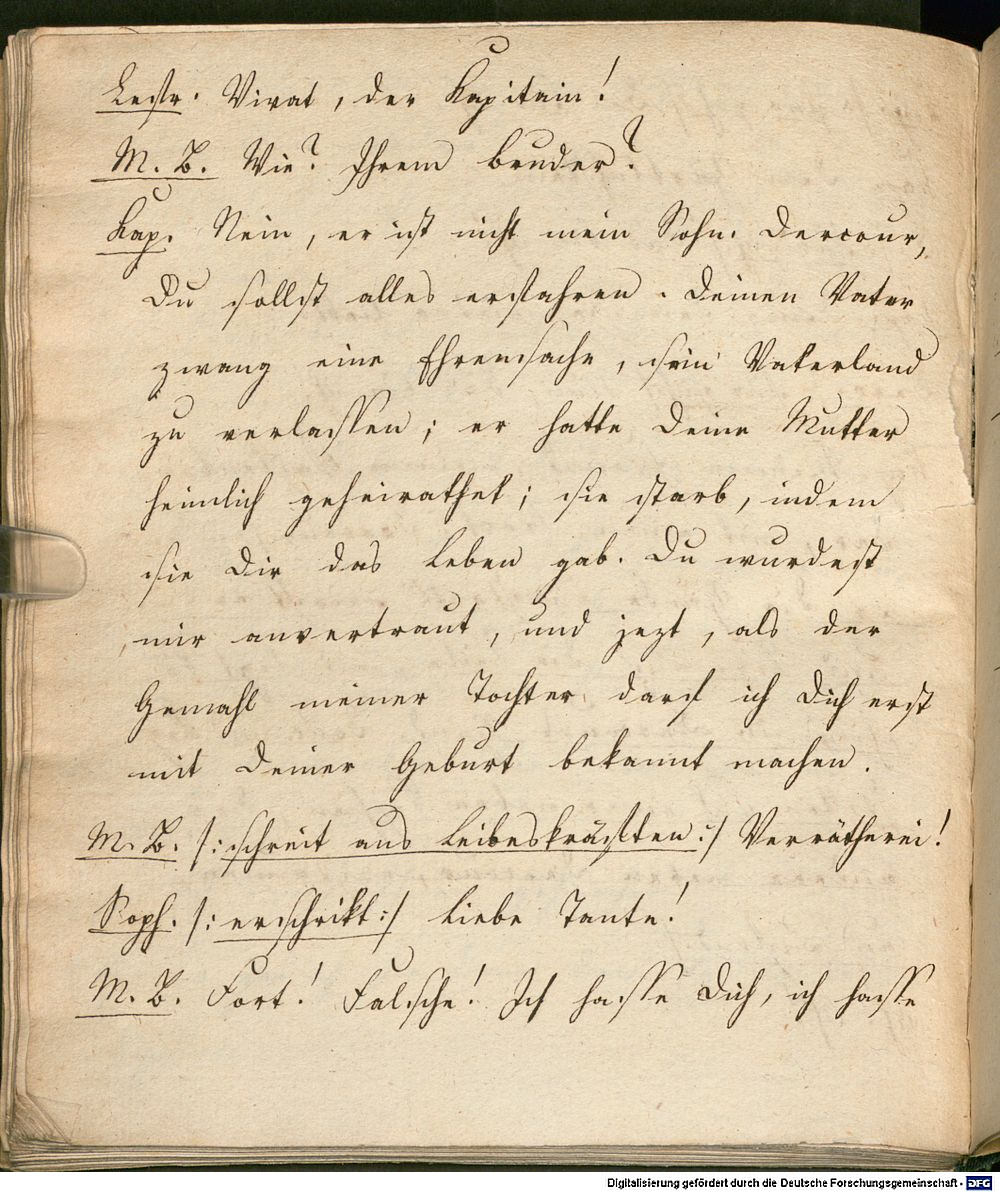 Lestr. Vivat, der Kapitain!
M. B. Wie? Ihrem Bruder?
Kap. Nein, er ist nicht mein Sohn. Dercour,
Du sollst alles erfahren. Deinen Vater
zwang eine Ehrensache, sein Vaterland
zu verlassen; er hatte Deine Mutter
heimlich geheirathet; sie starb, indem
sie Dir das Leben gab. Du wurdest
mir anvertraut, und jezt, als der
Gemahl meiner Tochter darf ich Dich erst
mit Deiner Geburt bekannt machen.
M. B. /: schreit aus Leibeskräften :/ Verrätherei!
Soph. /: erschrikt :/ Liebe Tante!
M. B. Fort! Falsche! Ich hasse Dich, ich hasse
Digitalisierung gefördert durch die Deutsche Forschungsgemeinschaft - DFG